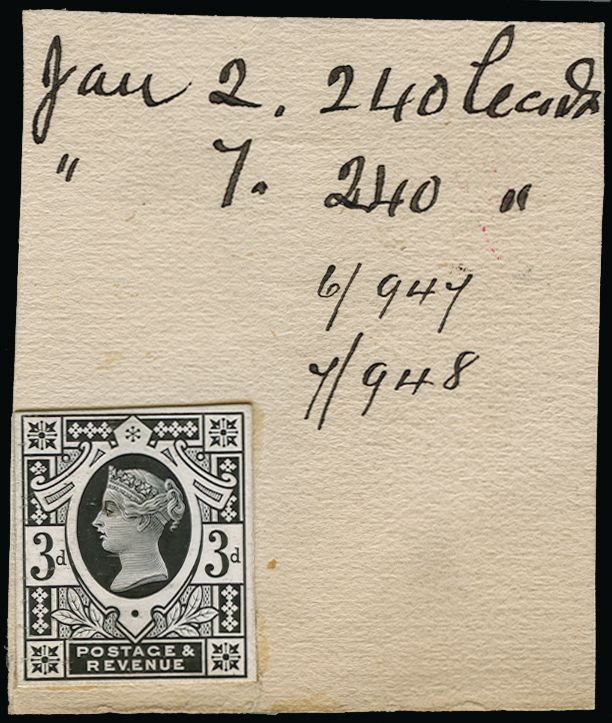 Jan 2. 240 leads
" 7. 240 "
6/947
7/948
3d 3d
POSTAGE &
REVENUE